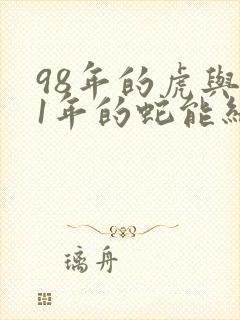 98年的虎與
1年的蛇能
璃舟